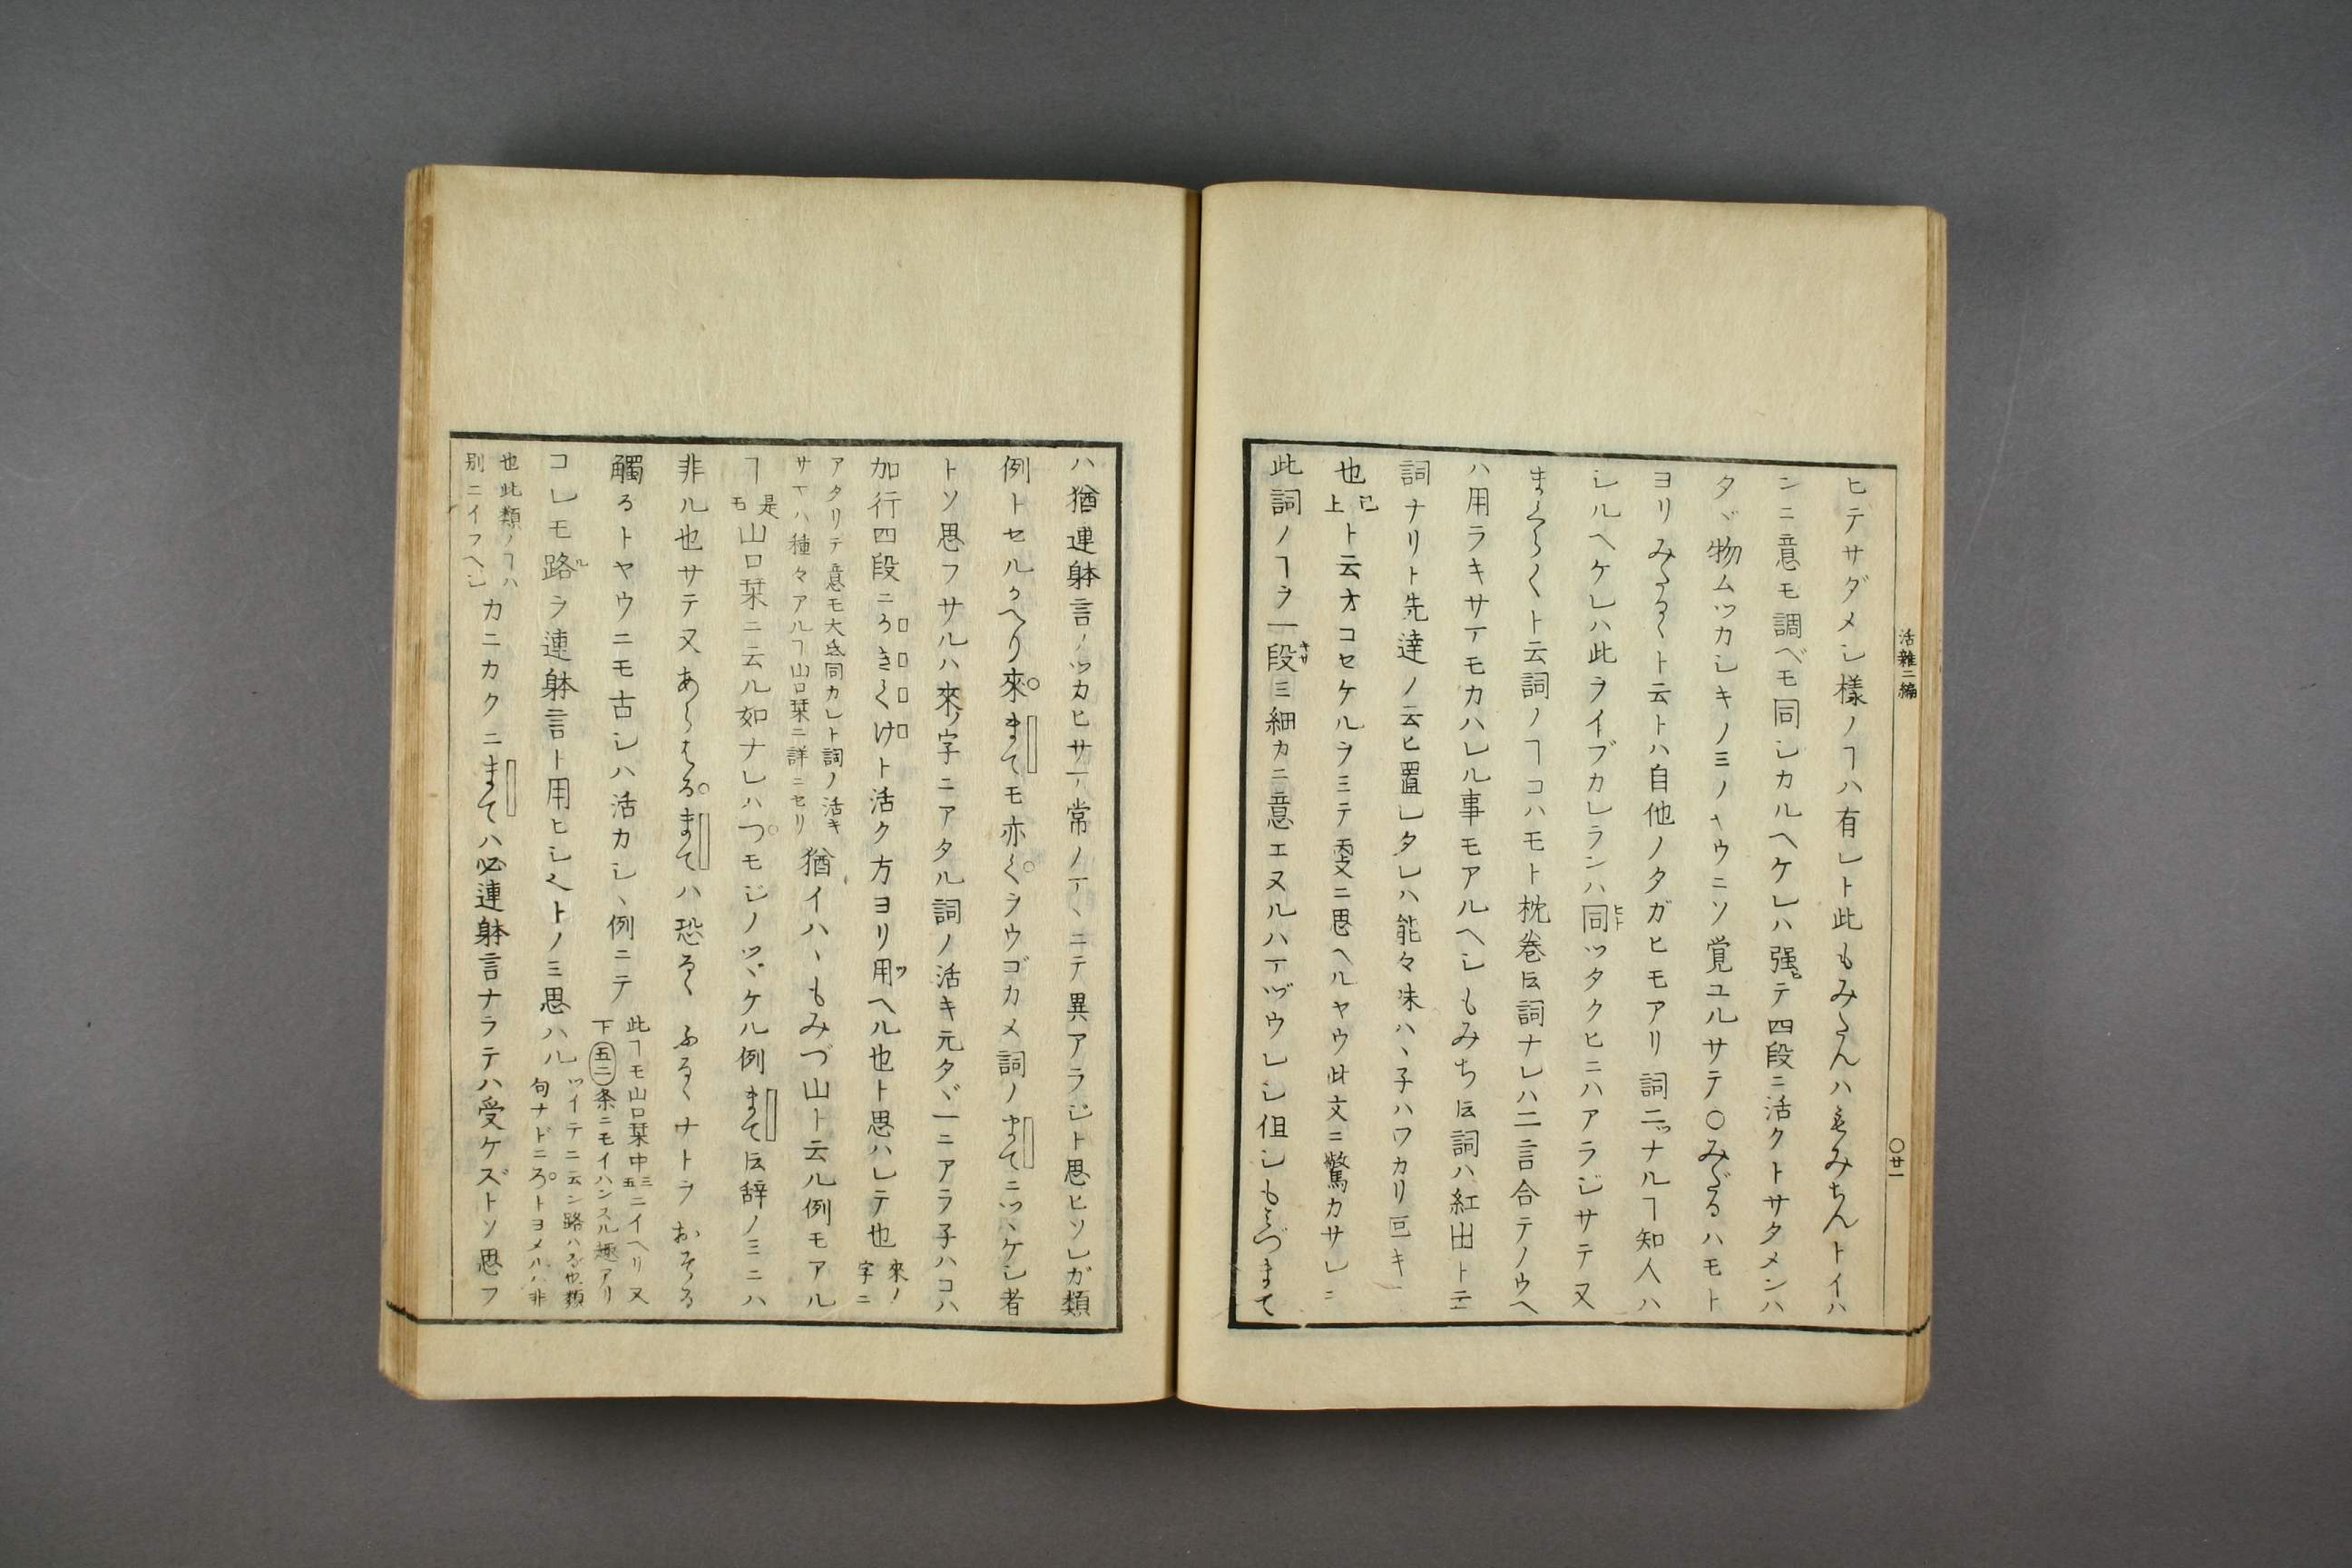 活雜二編
〇廿一
ヒテサダメシ樣ノヿハ有レト此もみたんハもみちんトイハ
ンニ意モ調ベモ同シカルヘケレハ强ヒテ四段ニ活クトサタメンハ
タヾ物ムツカシキノミノヤウニソ覚ユルサテ〇みだるハモト
ヨリみたるゝト云トハ自他ノタガヒモアリ詞二ツナルヿ知人ハ
シルヘケレハ此ヲイブカレランハ同ヒトツタクヒニハアラジサテ又
まくらくト云詞ノヿコハモト枕卷ト云詞ナレハ二言合テノウヘ
ハ用ラキサヿモカハレル事モアルヘシもみちト云詞ハ紅出ト云
詞ナリト先達ノ云ヒ置レタレハ能々味ハヽ子ハワカリ叵キ
也 已上 ト云オコセケルヲミテ更ニ思ヘルヤウ此文ニ驚カサレニ
此詞ノヿヲ一段キサミ細カニ意エヌルハヿヅウレシ但しもみづまて
ハ猶連躰言ノツカヒサヿ常ノヿヽニテ異アラジト思ヒソレガ類
例トセルうへり來まてモ亦くヲウゴカメ詞ノまてニツヽケシ者
トソ思フサルハ來ノ字ニアタル詞ノ活キ元タヾ一ニアラ子ハコハ
加行四段ニかきくけト活ク方ヨリ用ツヘル也ト思ハレテ也 來ノ字ニ
アタリテ意モ大底同カレト詞ノ活キ
サヿハ種々アルヿ山口栞ニ詳ニセリ 猶イハヽもみづ山ト云ル例モアル
ヿ 是モ 山口栞ニ云ル如ナレハつモジノツヾケル例まてト云辞ノミニハ
非ル也サテ又あらはるまてハ恐るゝふるゝナトヲおそる
觸るトヤウニモ古シハ活カシヽ例ニテ 此ヿモ山口栞中三五ニイヘリ又
下五二条ニモイハンスル趣アリ
コレモ路ルヲ連躰言ト用ヒシ也トノミ思ハル ツイテニ云ン路ハるや類
句ナドニろトヨメルハ非
也此類ノヿハ
別ニイフヘシ カニカクニまてハ必連躰言ナラテハ受ケズトソ思フ